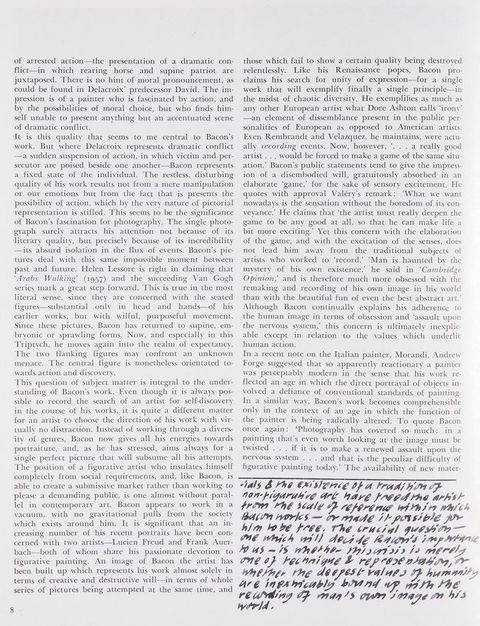 of arrested action—the presentation of a dramatic con-
flict—in which rearing horse and supine patriot are
juxtaposed. There is no hint of moral pronouncement, as
could be found in Delacroix' predecessor David. The im-
pression is of a painter who is fascinated by action, and
by the possibilities of moral choice, but who finds him-
self unable to present anything but an accentuated scene
of dramatic conflict.
It is this quality that seems to me central to Bacon's
work. But where Delacroix represents dramatic conflict
—a sudden suspension of action, in which victim and per-
secutor are poised beside one another—Bacon represents
a fixed state of the individual. The restless, disturbing
quality of his work results not from a mere manipulation
or our emotions but from the fact that is presents the
possibility of action, which by the very nature of pictorial
representation is stifled. This seems to be the significance
of Bacon's fascination for photography. The single photo-
graph surely attracts his attention not because of its
literary quality, but precisely because of its incredibility
—its absurd isolation in the flux of events. Bacon's pic-
tures deal with this same impossible moment between
past and future. Helen Lessore is right in claiming that
'Arabs Walking' (1957) and the succeeding Van Gogh
series mark a great step forward. This is true in the most
literal sense, since they are concerned with the seated
figures—substantial only in head and hands—of his
earlier works, but with wilful, purposeful movement.
Since these pictures, Bacon has returned to supine, em-
bryonic or sprawling forms. Now, and especially in this
Triptych, he moves again into the realm of expectancy.
The two flanking figures may confront an unknown
menace. The central figure is nonetheless orientated to-
wards action and discovery.
This question of subject matter is integral to the under-
standing of Bacon's work. Even though it is always pos-
sible to record the search of an artist for self-discovery
in the course of his works, it is quite a different matter
for an artist to choose the direction of his work with vir-
tually no distraction. Instead of working through a divers-
ity of genres, Bacon now gives all his energies towards
portraiture, and, as he has stressed, aims always for a
single perfect picture that will subsume all his attempts.
The position of a figurative artist who insulates himself
completely from social requirements, and, like Bacon, is
able to create a submissive market rather than working to
please a demanding public, is one almost without paral-
lel in contemporary art. Bacon appears to work in a
vacuum, with no gravitational pulls from the society
which exists around him. It is significant that an in-
creasing number of his recent portraits have been con-
cerned with two artists—Lucien Freud and Frank Auer-
bach—both of whom share his passionate devotion to
figurative painting. An image of Bacon the artist has
been built up which represents his work almost solely in
terms of creative and destructive will—in terms of whole
series of pictures being attempted at the same time, and
8
those which fail to show a certain quality being destroyed
relentlessly. Like his Renaissance popes, Bacon pro-
claims his search for unity of expression—for a single
work that will exemplify finally a single principle—in
the midst of chaotic diversity. He exemplifies as much as
any other European artist what Dore Ashton calls 'irony'
—an element of dissemblance present in the public per-
sonalities of European as opposed to American artists.
Even Rembrandt and Velazquez, he maintains, were actu-
ally recording events. Now, however, '. . . a really good
artist . . . would be forced to make a game of the same situ-
ation.' Bacon's public statements tend to give the impress-
ion of a disembodied will, gratuitously absorbed in an
elaborate 'game,' for the sake of sensory excitement. He
quotes with approval Valéry's remark: 'What we want
nowadays is the sensation without the boredom of its con-
veyance.' He claims that 'the artist must really deepen the
game to be any good at all, so that he can make life a
bit more exciting.' Yet this concern with the elaboration
of the game, and with the excitation of the senses, does
not lead him away from the traditional subjects of
artists who worked to 'record.' 'Man is haunted by the
mystery of his own existence,' he said in 'Cambridge
Opinion,' and is therefore much more obsessed with the
remaking and recording of his own image in his world
than with the beautiful fun of even the best abstract art.'
Although Bacon continually explains his adherence to
the human image in terms of obsession and 'assault upon
the nervous system,' this concern is ultimately inexplic-
able except in relation to the values which underlie
human action.
In a recent note on the Italian painter, Morandi, Andrew
Forge suggested that so apparently reactionary a painter
was perceptably modern in the sense that his work re-
flected an age in which the direct portrayal of objects in-
volved a defiance of conventional standards of painting.
In a similar way, Bacon's work becomes comprehensible
only in the context of an age in which the function of
the painter is being radically altered. To quote Bacon
once again: 'Photography has covered so much: in a
painting that's even worth looking at the image must be
twisted . . . if it is to make a renewed assault upon the
nervous system . . . and that is the peculiar difficulty of
figurative painting today.' The availability of new mater-
ials & the existence of a tradition of
non-figurative art have freed the artist
from the scale of reference within which
Bacon works — or made it possible for
him to be free. The crucial question —
one which will decide Bacon's importance
to us — is whether this crisis is merely
one of technique & representation, or
whether the deepest values of humanity
are inextricably bound up with the
recording of man's own image in his
world.